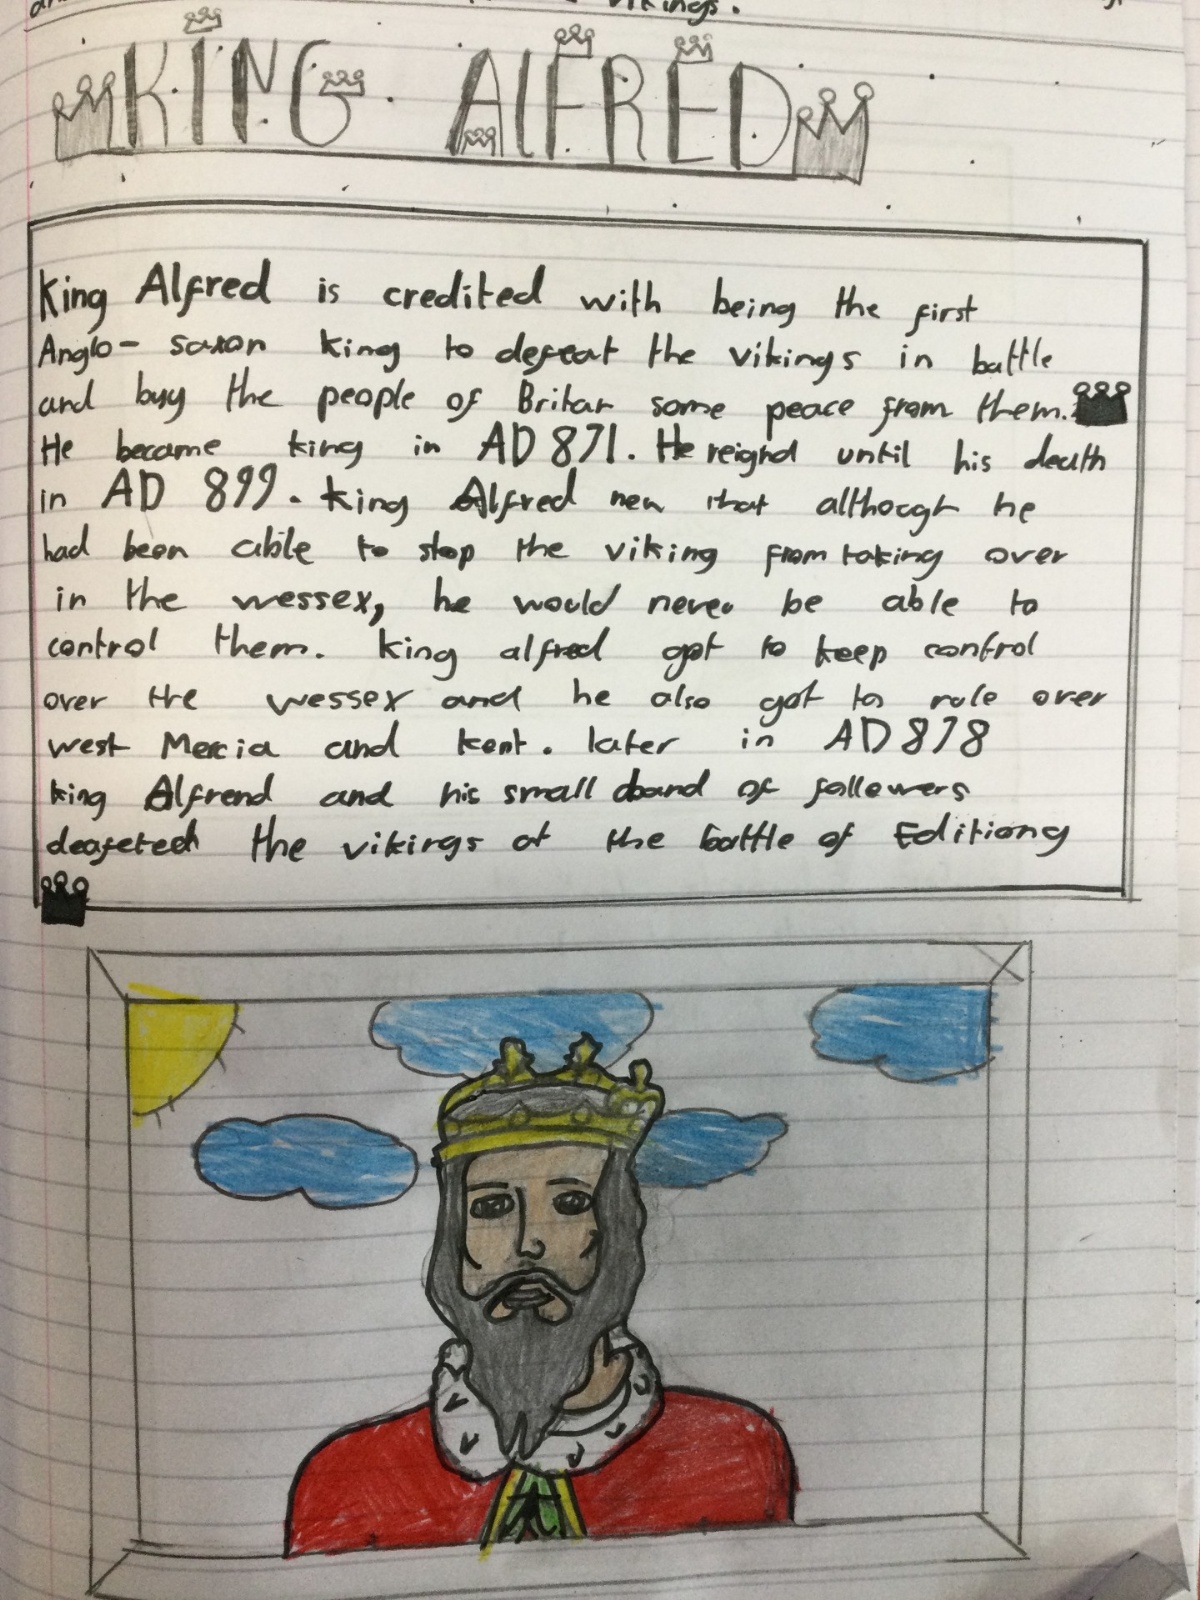 vikings.
KING ALFRED
King Alfred is credited with being the first
Anglo- saxon king to defeat the vikings in battle
and buy the people of Britan some peace from them.
He became king in AD 871. He reignd until his death
in AD 899. king Alfred new that althoogh he
had been able to stop the viking from taking over
in the wessex, he would never be able to
control them. king alfred got to keep control
over the wessex and he also got to rule over
west Mercia and kent. later in AD 878
king Alfrend and his small band of followers
deafeted the vikings at the battle of Editiong